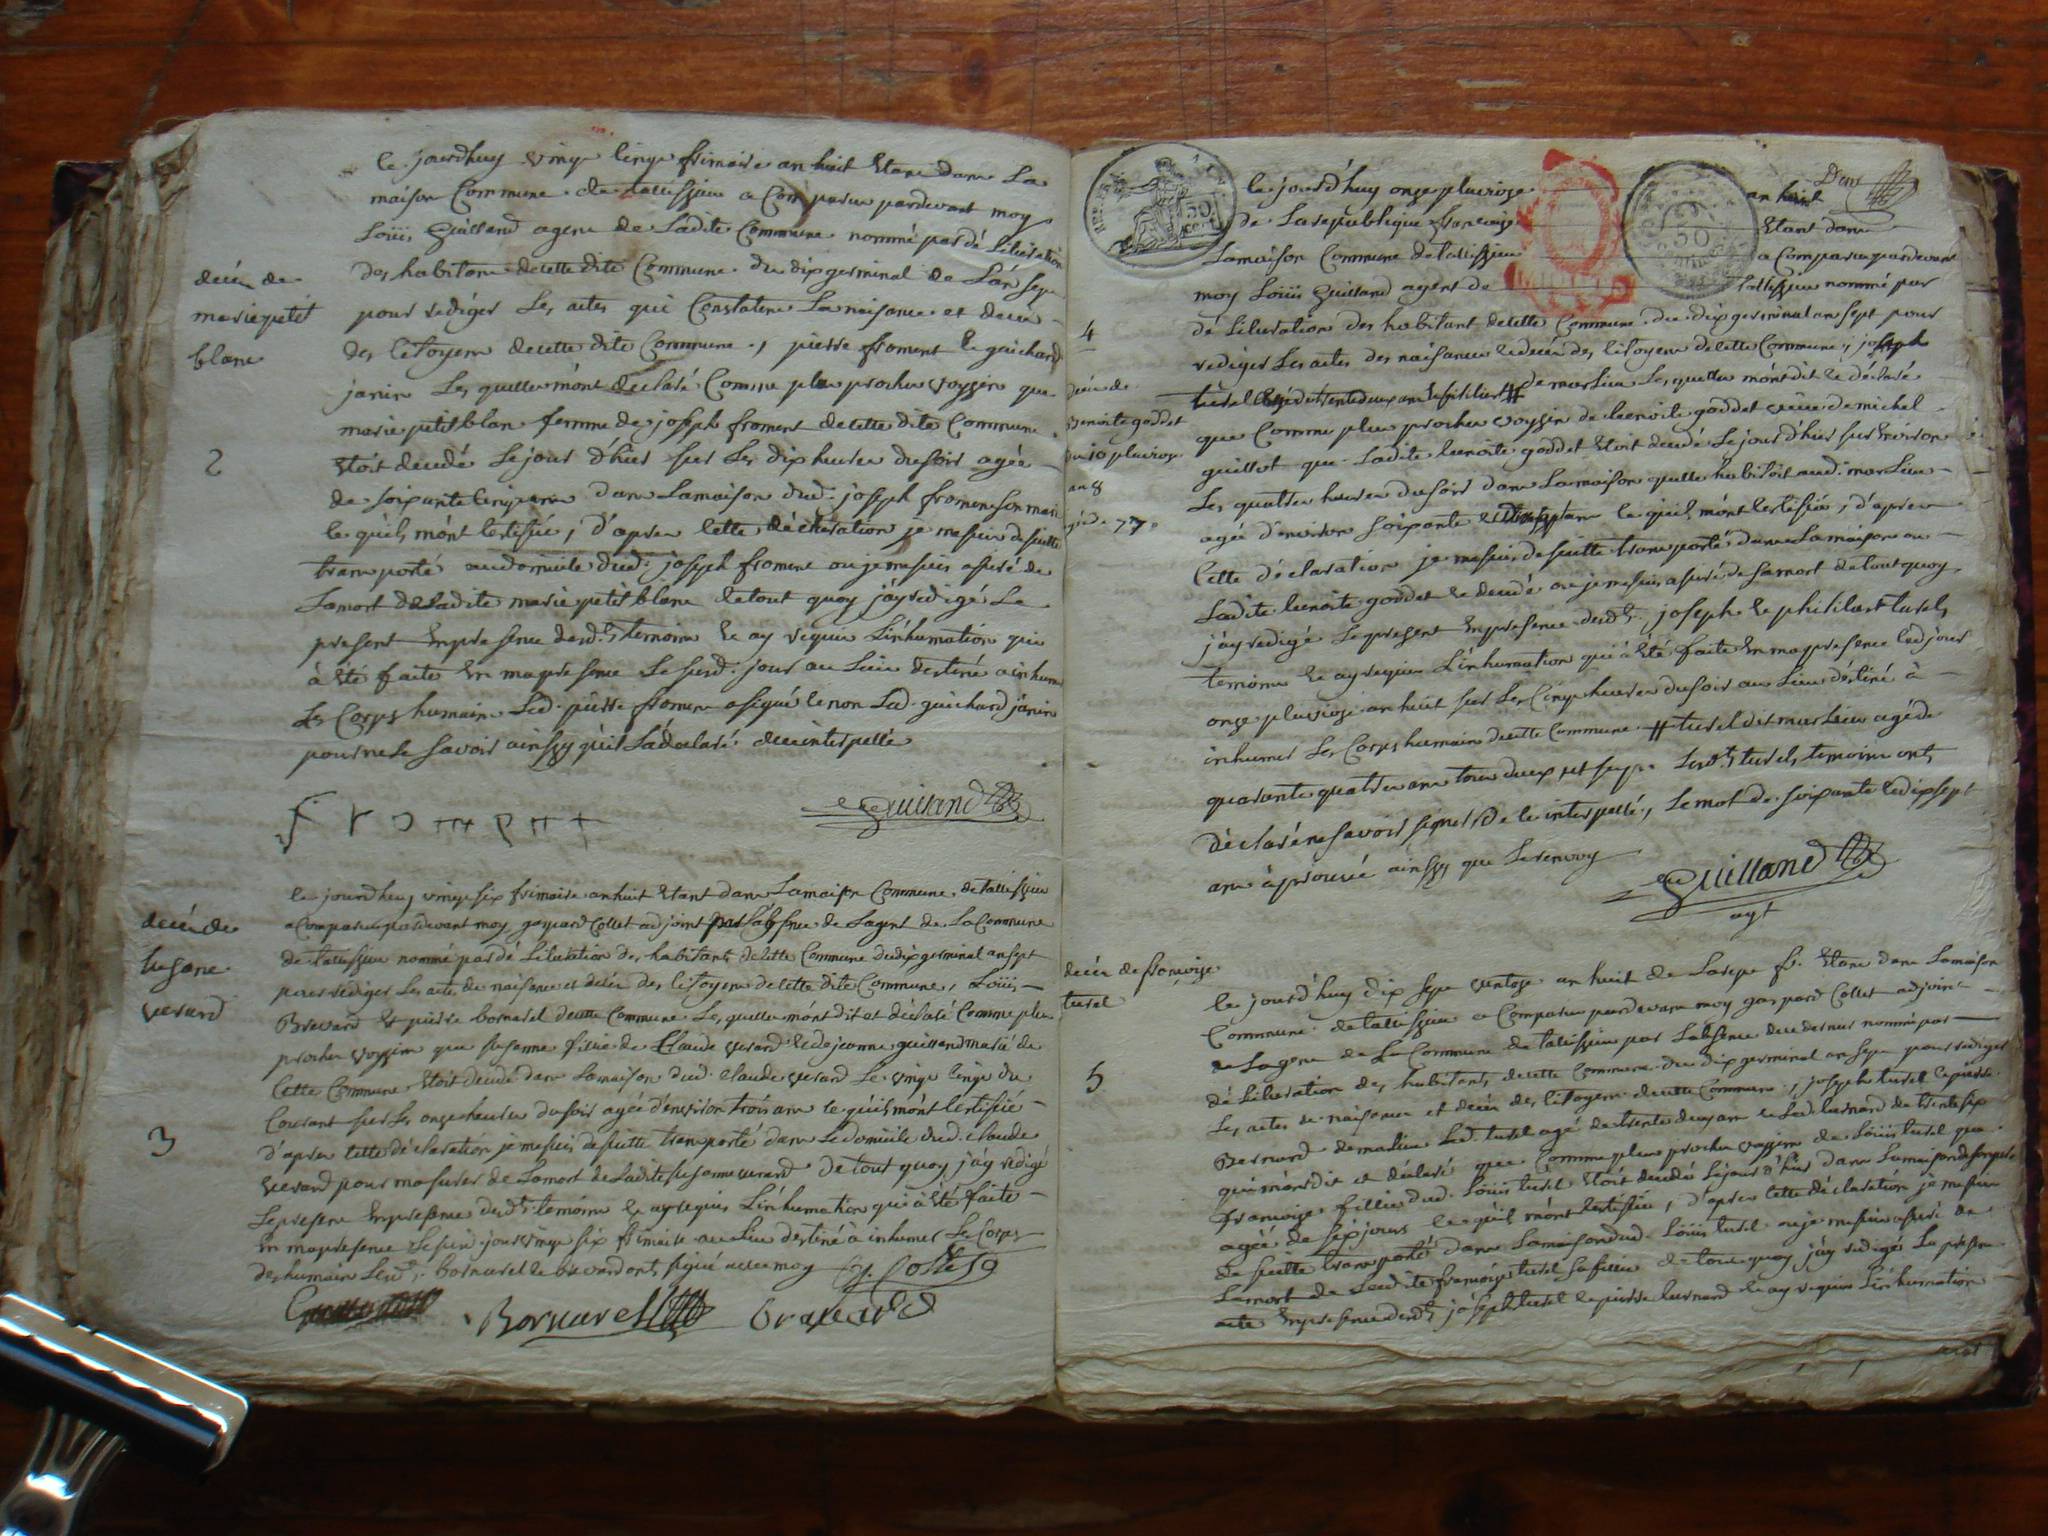 le jourdhuy vingt cinq frimaire an huit etant dans La
maison Commune de tallissieu a Comparu pardevant moy
Loüis Guilland agent de Ladite Commune nommé par dé Liberation
des habitans de cette dite Commune du dix germinal de L'an sept
pour rediger Les actes qui Constatent La naisance et decés
des Citoyens de cette dite Commune, pierre froment & guichard
janin Les quels m'ont declaré Comme plus proches voysins que
marie petit blan femme de joseph froment de cette dite Commune
etoit decedé Le jour d'hier sur Les dix heures du soir agée
de soixante cinq ans dans La maison dud. joseph froment son mari
ce qu'ils m'ont certifié, d'apres cette déclaration je me suis de suitte
transporté au domicile dud. joseph froment ou je me suis assuré de
La mort de Ladite marie petit blanc de tout quoy j'ay redigé Le
present en presence desd.ts temoins & ay requis L'inhumation qui
à été faite en ma presence Le susd. jour au Lieu destiné a inhumer
Les Corps humains Led. pierre froment a signé & non Led. guichard janin
pour ne le savoir ainssy qu'il L'a déclaré de ce interpellé
decés de
marie petit
blanc
2
froment
Guilland
le jourdhuy vingt six frimaire an huit etant dans La maison Commune de tallissieu
a Comparu pardevant moy gaspard Collet adjoint par L'absence de L'agent de La Commune
de tallissieu nommé par dé Liberation des habitants de cette Commune du dix germinal an sept
pour rediger Les actes de naisance et decés des Citoyens de cette dite Commune, Loüis
Bravard et pierre bornarel de cette Commune Les quels m'ont dit et déclaré Comme plus
proches voysins que susanne fille de Claude verard & de jeanne guilland mariés de
Cette Commune etoit decedé dans La maison dud. claude verard Le vingt cinq du
Courant sur Les onze heures du soir agée d'environ trois ans ce qu'ils m'ont certifié
d'apres cette déclaration je me suis de suitte transporté dans Le domicile dud. claude
verard pour m'assurer de La mort de Ladite susanne verard de tout quoy j'ay redigé
Le present en presence desd.ts temoins & ay requis L'inhumation qui à été faite
en ma presence Le susd. jour vingt six frimaire au Lieu destiné à inhumer Les Corps
des humains Lesd.ts bornarel & bravard ont signé avec moy G. Collet
decés de
susane
verard
3
Bornarel Bravard
Deux
le jourd'huy onze pluviose an huit
de La republique française etant dans
La maison Commune de tallissieu a Comparu pardevant
moy Loüis Guilland agent de tallissieu nommé par
dé Liberation des habitant de cette Commune du dix germinal an sept pour
rediger Les actes des naisances & decés des Citoyens de cette Commune, joseph
turel agé de trente deux ans & philibert # de marlieu Les quels m'ont dit & déclaré
que Comme plus proches voysins de benoite goddet veuve de michel
guillot que Ladite benoite goddet etoit decedé Le jour d'hier sur environ
Les quatre heures du soir dans La maison quelle habitoit aud. marlieu
agée d'environ soixante & dix sept ans ce qu'ils m'ont certifié, d'apres
Cette déclaration je me suis de suitte transporté dans La maison ou
Ladite benoite goddet & decedé ou je me suis assuré de sa mort de tout quoy
j'ay redigé Le present en presence desd.ts joseph & philibert turel
temoins & ay requis L'inhumation qui à été faite en ma presence Led. jour
onze pluviose an huit sur Les Cinq heures du soir au Lieu déstiné à
inhumer Les Corps humains de cette Commune # turel de marlieu agé de
quarante quatre ans tous deux Lesd.ts turel temoins ont
déclaré ne savoir signer de ce interpellé, Le mot de soixante & dix sept
ans àprouvé ainssy que Le renvoy
4
decés de
Benoite goddet
du 10 pluviose
an 8
agée de 77
Guilland
agt
le jourd'huy dix sept ventose an huit de La rep. fr. etant dans La maison
Commune de tallissieu a Comparu pardevant moy gaspard Collet adjoint
de L'agent de La Commune de tallissieu par L'absence de ce dernier nommé par
dé Liberation des habitants de cette Commune du dix germinal an sept pour rediger
Les actes de naisance et decés des Citoyens de cette Commune, joseph turel & pierre
Bernard de malieu Led. turel agé de trente deux ans & Led. bernard de trente six
qui m'ont dit et déclaré que Comme plus proches voysins de Loüis turel que
françoise fillie dud. Loüis turel etoit decedé Le jour d'hier dans La maison de son pere
agée de six jours ce qu'ils m'ont certifié, d'apres cette déclaration je me suis
de suitte transporté dans La maison dud. Loüis turel ou je me suis assuré de
La mort de Ladite françoise turel sa fillie de tout quoy j'ay redigé Le present
acte en presence desd.ts joseph turel & pierre bernard & ay requis L'inhumation
decés de françoise
turel
5